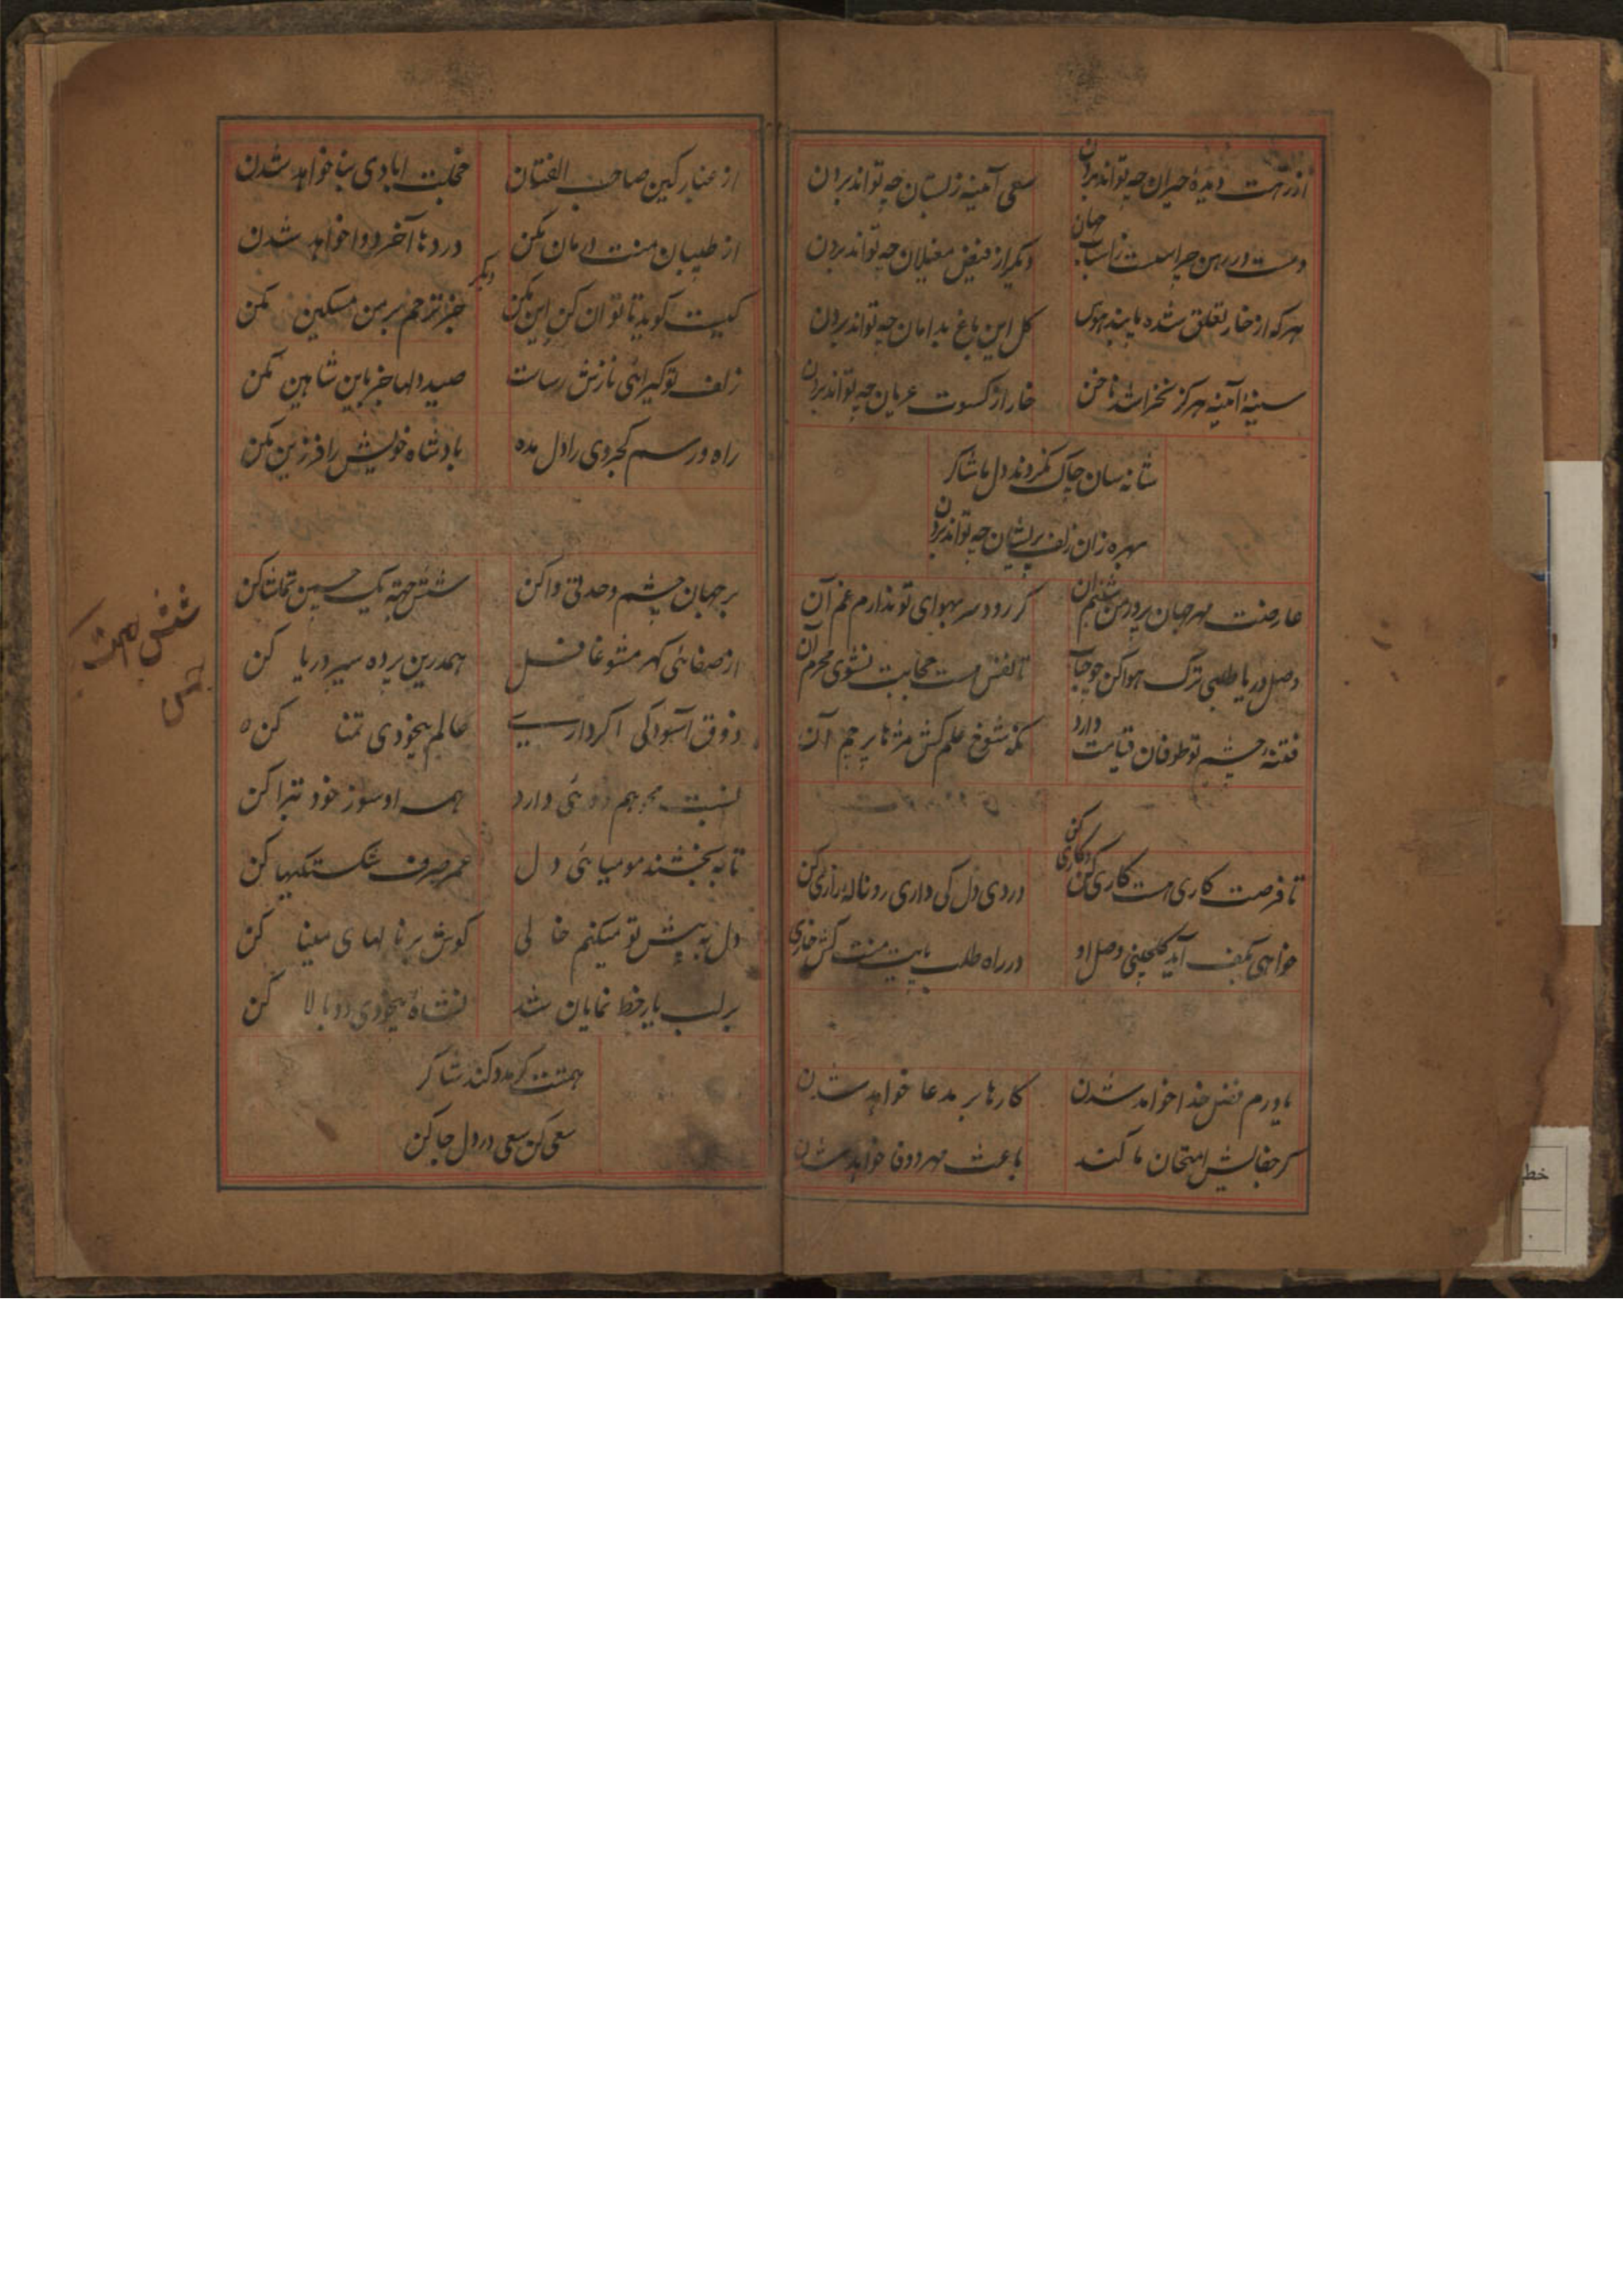 از رهت دیدهٔ حیران چه تواند بردن
سعی آئینه ز بستان چه تواند بردن
دست در رهن چراست ز اسباب جهان
دیگر از فیض مغیلان چه تواند بردن
هر که از خار تعلق شده پابند هوس
گل این باغ بدامان چه تواند بردن
سینهٔ آئینه هرگز نخراشد ناخن
خار از کسوت عریان چه تواند بردن
شانه سان چاک نکردند دل ما شاکر
بهره زان زلف پریشان چه تواند بردن
عارضت مهر جهان پرور من شبنم آن
گر رود سر بهوای تو ندارم غم آن
وصل دریا طلبی ترک هوا کن چو حباب
تا نفس هست حجابت نشوی محرم آن
فتنهٔ چشم تو طوفان قیامت دارد
نگه شوخ علم کش مژها پرچم آن
تا فرصت کاری هست کاری کن و کاری کن
درد دل کی داری رو نالهٔ زاری کن
خواهی بکف آید گلچینی وصل او
در راه طلب بایت منت کش خاری
یاورم فضل خدا خواهد شدن
کارها بر مدعا خواهد شدن
گر جفایش امتحان ما کند
باعث مهر و وفا خواهد شدن
از غبار کین صاحب الفتان
خجلت ابادی بنا خواهد شدن
از طبیبان منت درمان مکن
دردها آخر دوا خواهد شدن
دیگر
کیست گوید تا توان کن این مکن
جز ترحم بر من مسکین مکن
زلف تو گیرائی نازش رساست
صید دلها جز باین شاهین مکن
راه و رسم کجروی را دل مده
بادشاه خویش را فرزین مکن
بر جهان چشم وحدتی واکن
شش جهته یک حسین تماشا کن
از صفائی گهر مشو غافل
همدرین پرده سیر دریا کن
ذوق آسودگی اگر داری
عالم بیخودی تمنا کن
نسبت هم دوئی دارد
همه او سوز خود تبرا کن
تا به بخشند مومیائی دل
عمر صرف شکستگیها کن
دل به پیش تو میکنم خالی
گوش بر نالهای مینا کن
بر لب یار خط نمایان شد
نشاهٔ بیخودی دو بالا کن
همتت گر مدد کند شاکر
سعی کن سعی در دل جا کن
شش جهت
خط